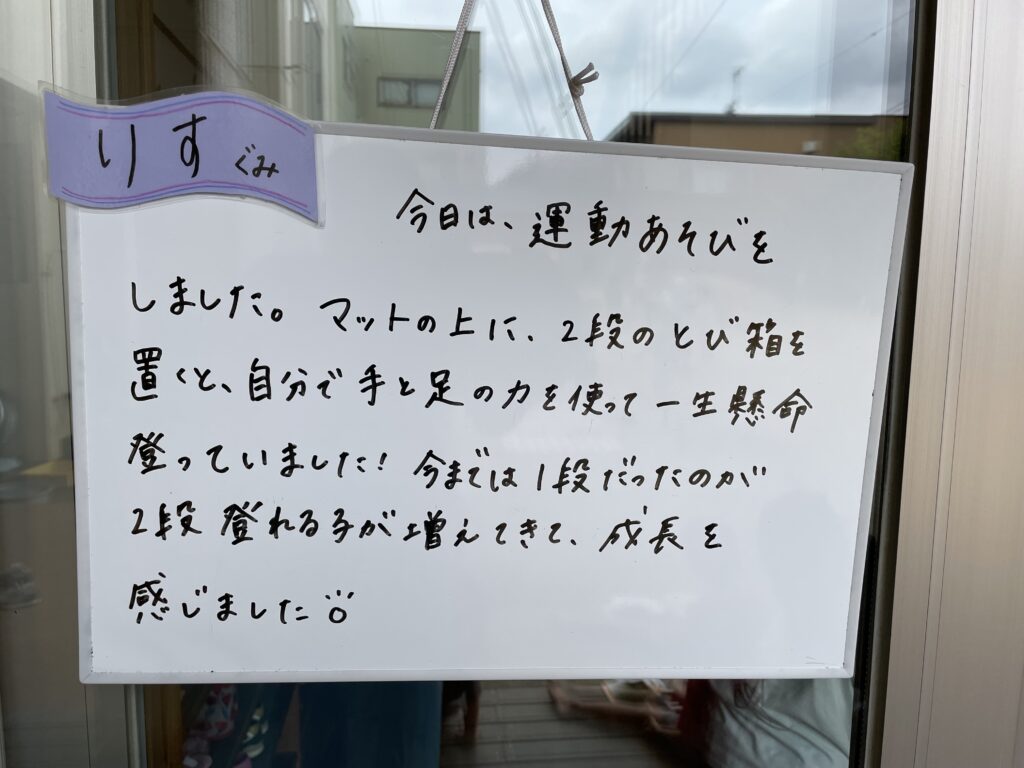 りすぐみ
今日は、運動あそびを
しました。マットの上に、2段のとび箱を
置くと、自分で手と足の力を使って一生懸命
登っていました!今までは1段だったのが
2段登れる子が増えてきて、成長を
感じました